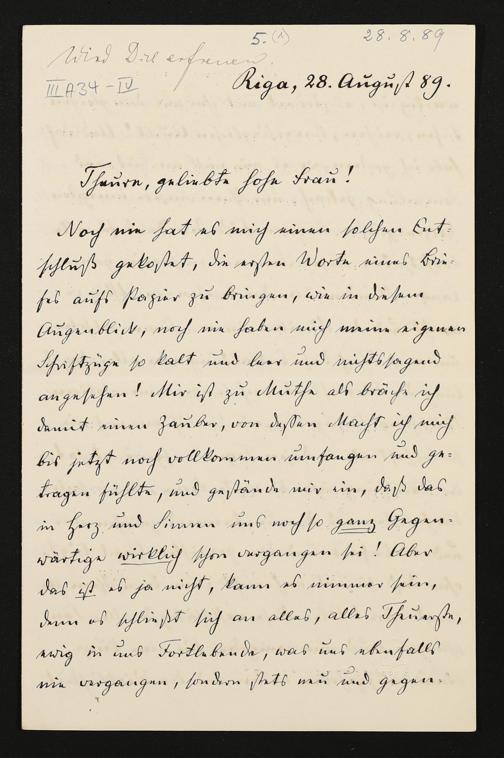 5. (1)
28.8.89
Wird Dich erfreuen.
III A34-IV
Riga, 28. August 89.
Theure, geliebte hohe Frau!
Noch nie hat es mich einen solchen Ent-
schluß gekostet, die ersten Worte eines Brie-
fes aufs Papier zu bringen, wie in diesem
Augenblick, noch nie haben mich meine eigenen
Schriftzüge so kalt und leer und nichtssagend
angesehen! Mir ist zu Muthe als bräche ich
damit einen Zauber, von dessen Macht ich mich
bis jetzt noch vollkommen umfangen und ge-
tragen fühlte, und gestände mir ein, daß das
in Herz und Sinnen uns noch so ganz Gegen-
wärtige wirklich schon vergangen sei! Aber
das ist es ja nicht, kann es nimmer sein,
denn es schließt sich an alles, alles Theuerste,
ewig in uns Fortlebende, was uns ebenfalls
nie vergangen, sondern stets neu und gegen-